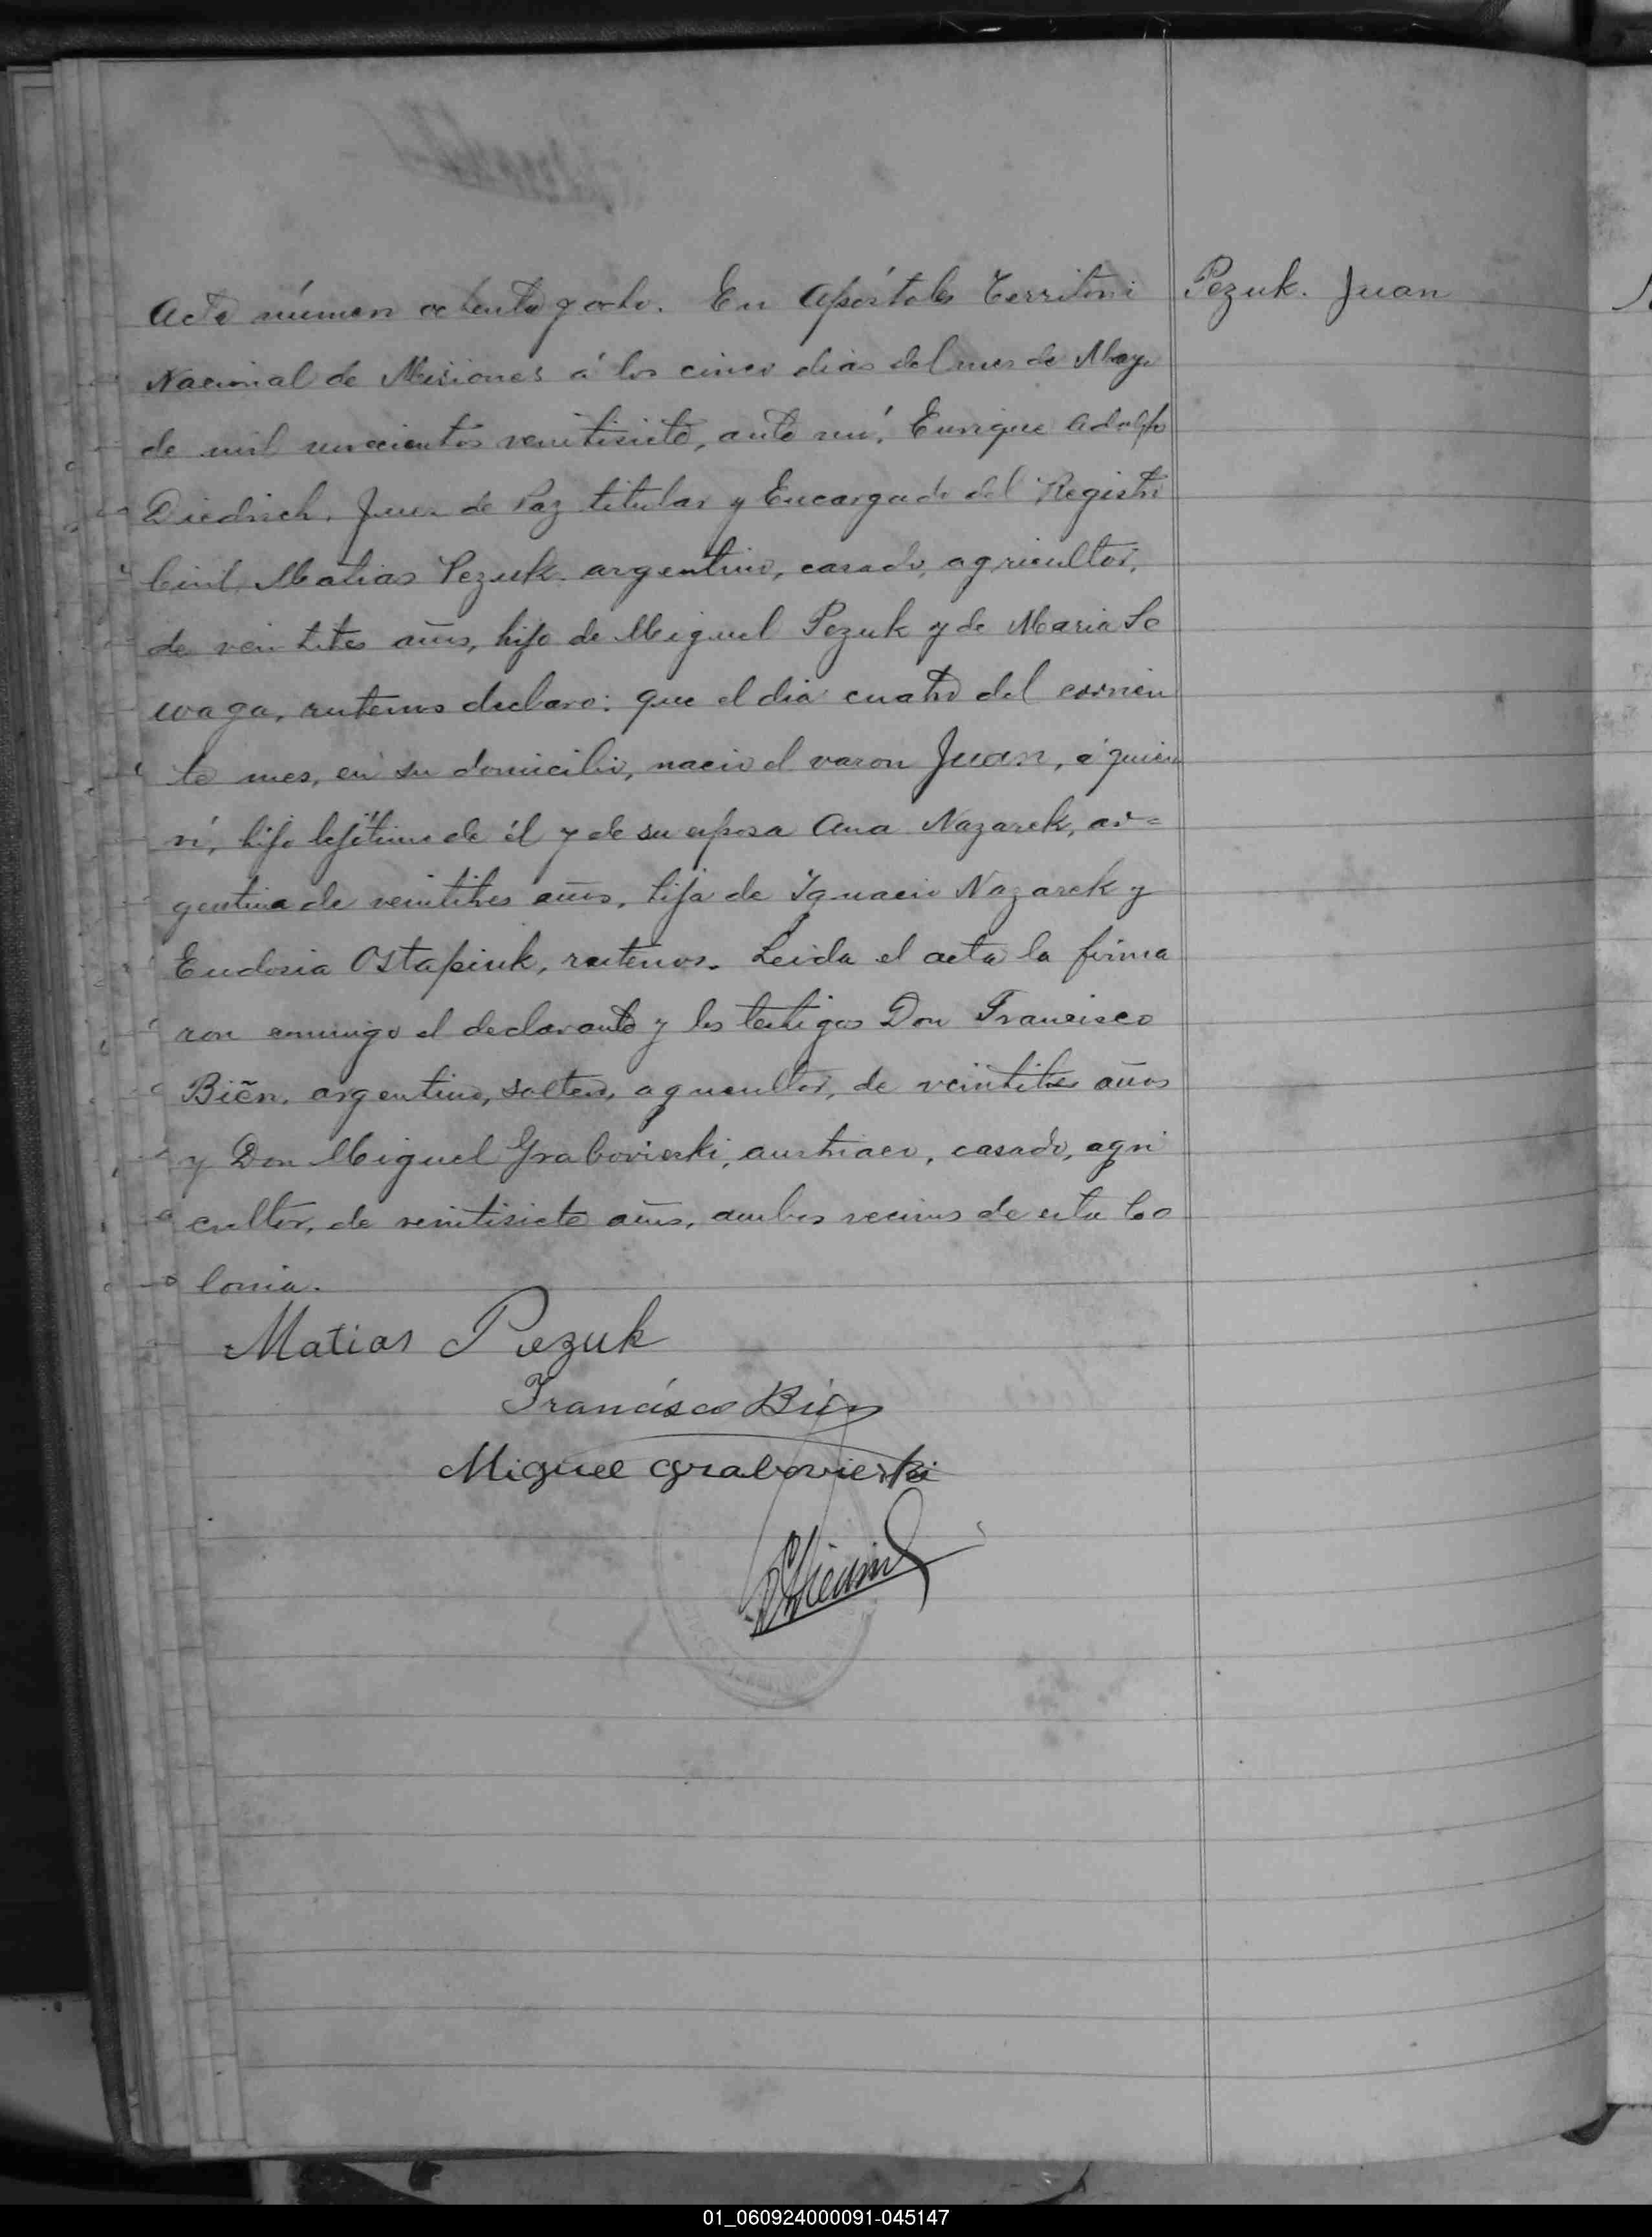 Acta número ochenta y ocho. En Apóstoles Territorio
Pezuk. Juan
Nacional de Misiones á los cinco dias del mes de Mayo
de mil novecientos veintisiete, ante mí, Enrique Adolfo
Diedrich, Juez de Paz titular y Encargado del Registro
Civil, Matias Pezuk, argentino, casado, agricultor,
de veintitres años, hijo de Miguel Pezuk y de Maria Se
waga, rutenos declaro: que el dia cuatro del corrien
te mes, en su domicilio, nacio el varon Juan, á quien
ví, hijo lejítimo de él y de su esposa Ana Nazarek, ar=
gentina de veintitres años, hija de Ignacio Nazarek y
Eudosia Ostapiuk, rutenos. Leida el acta la firma
ron conmigo el declarante y los testigos Don Francisco
Bień, argentino, soltero, agricultor, de veintitres años
y Don Miguel Grabovieski, austriaco, casado, agri
cultor, de veintisiete años, ambos vecinos de esta Co
lonia.
Matias Pezuk
Francisco Bień
Miguel Grabovieski
01_060924000091-045147